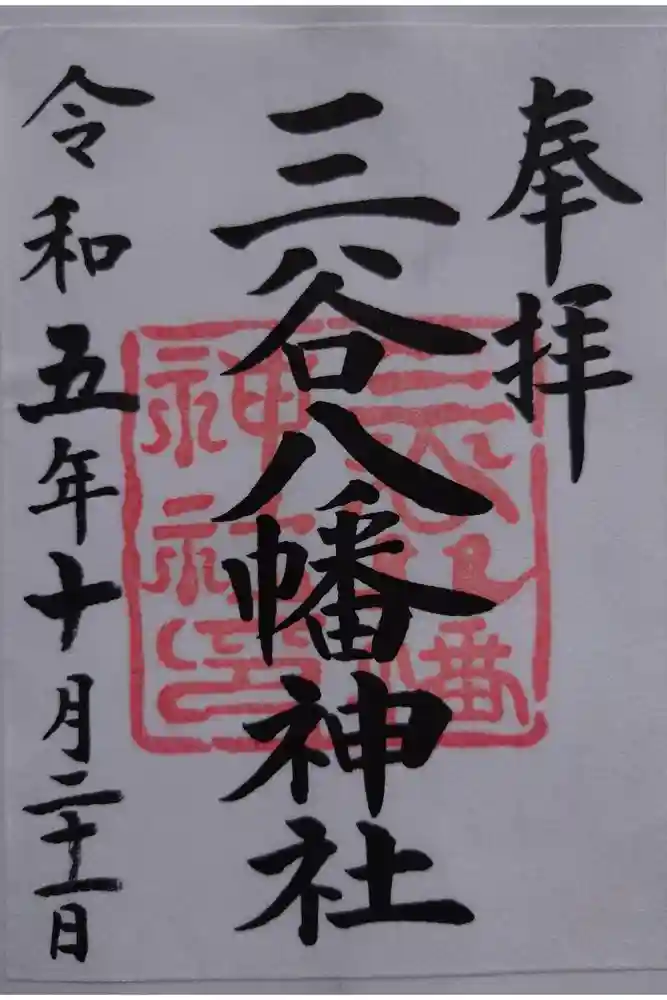 奉拝
三谷八幡神社
令和五年十月二十一日
三谷八幡神社